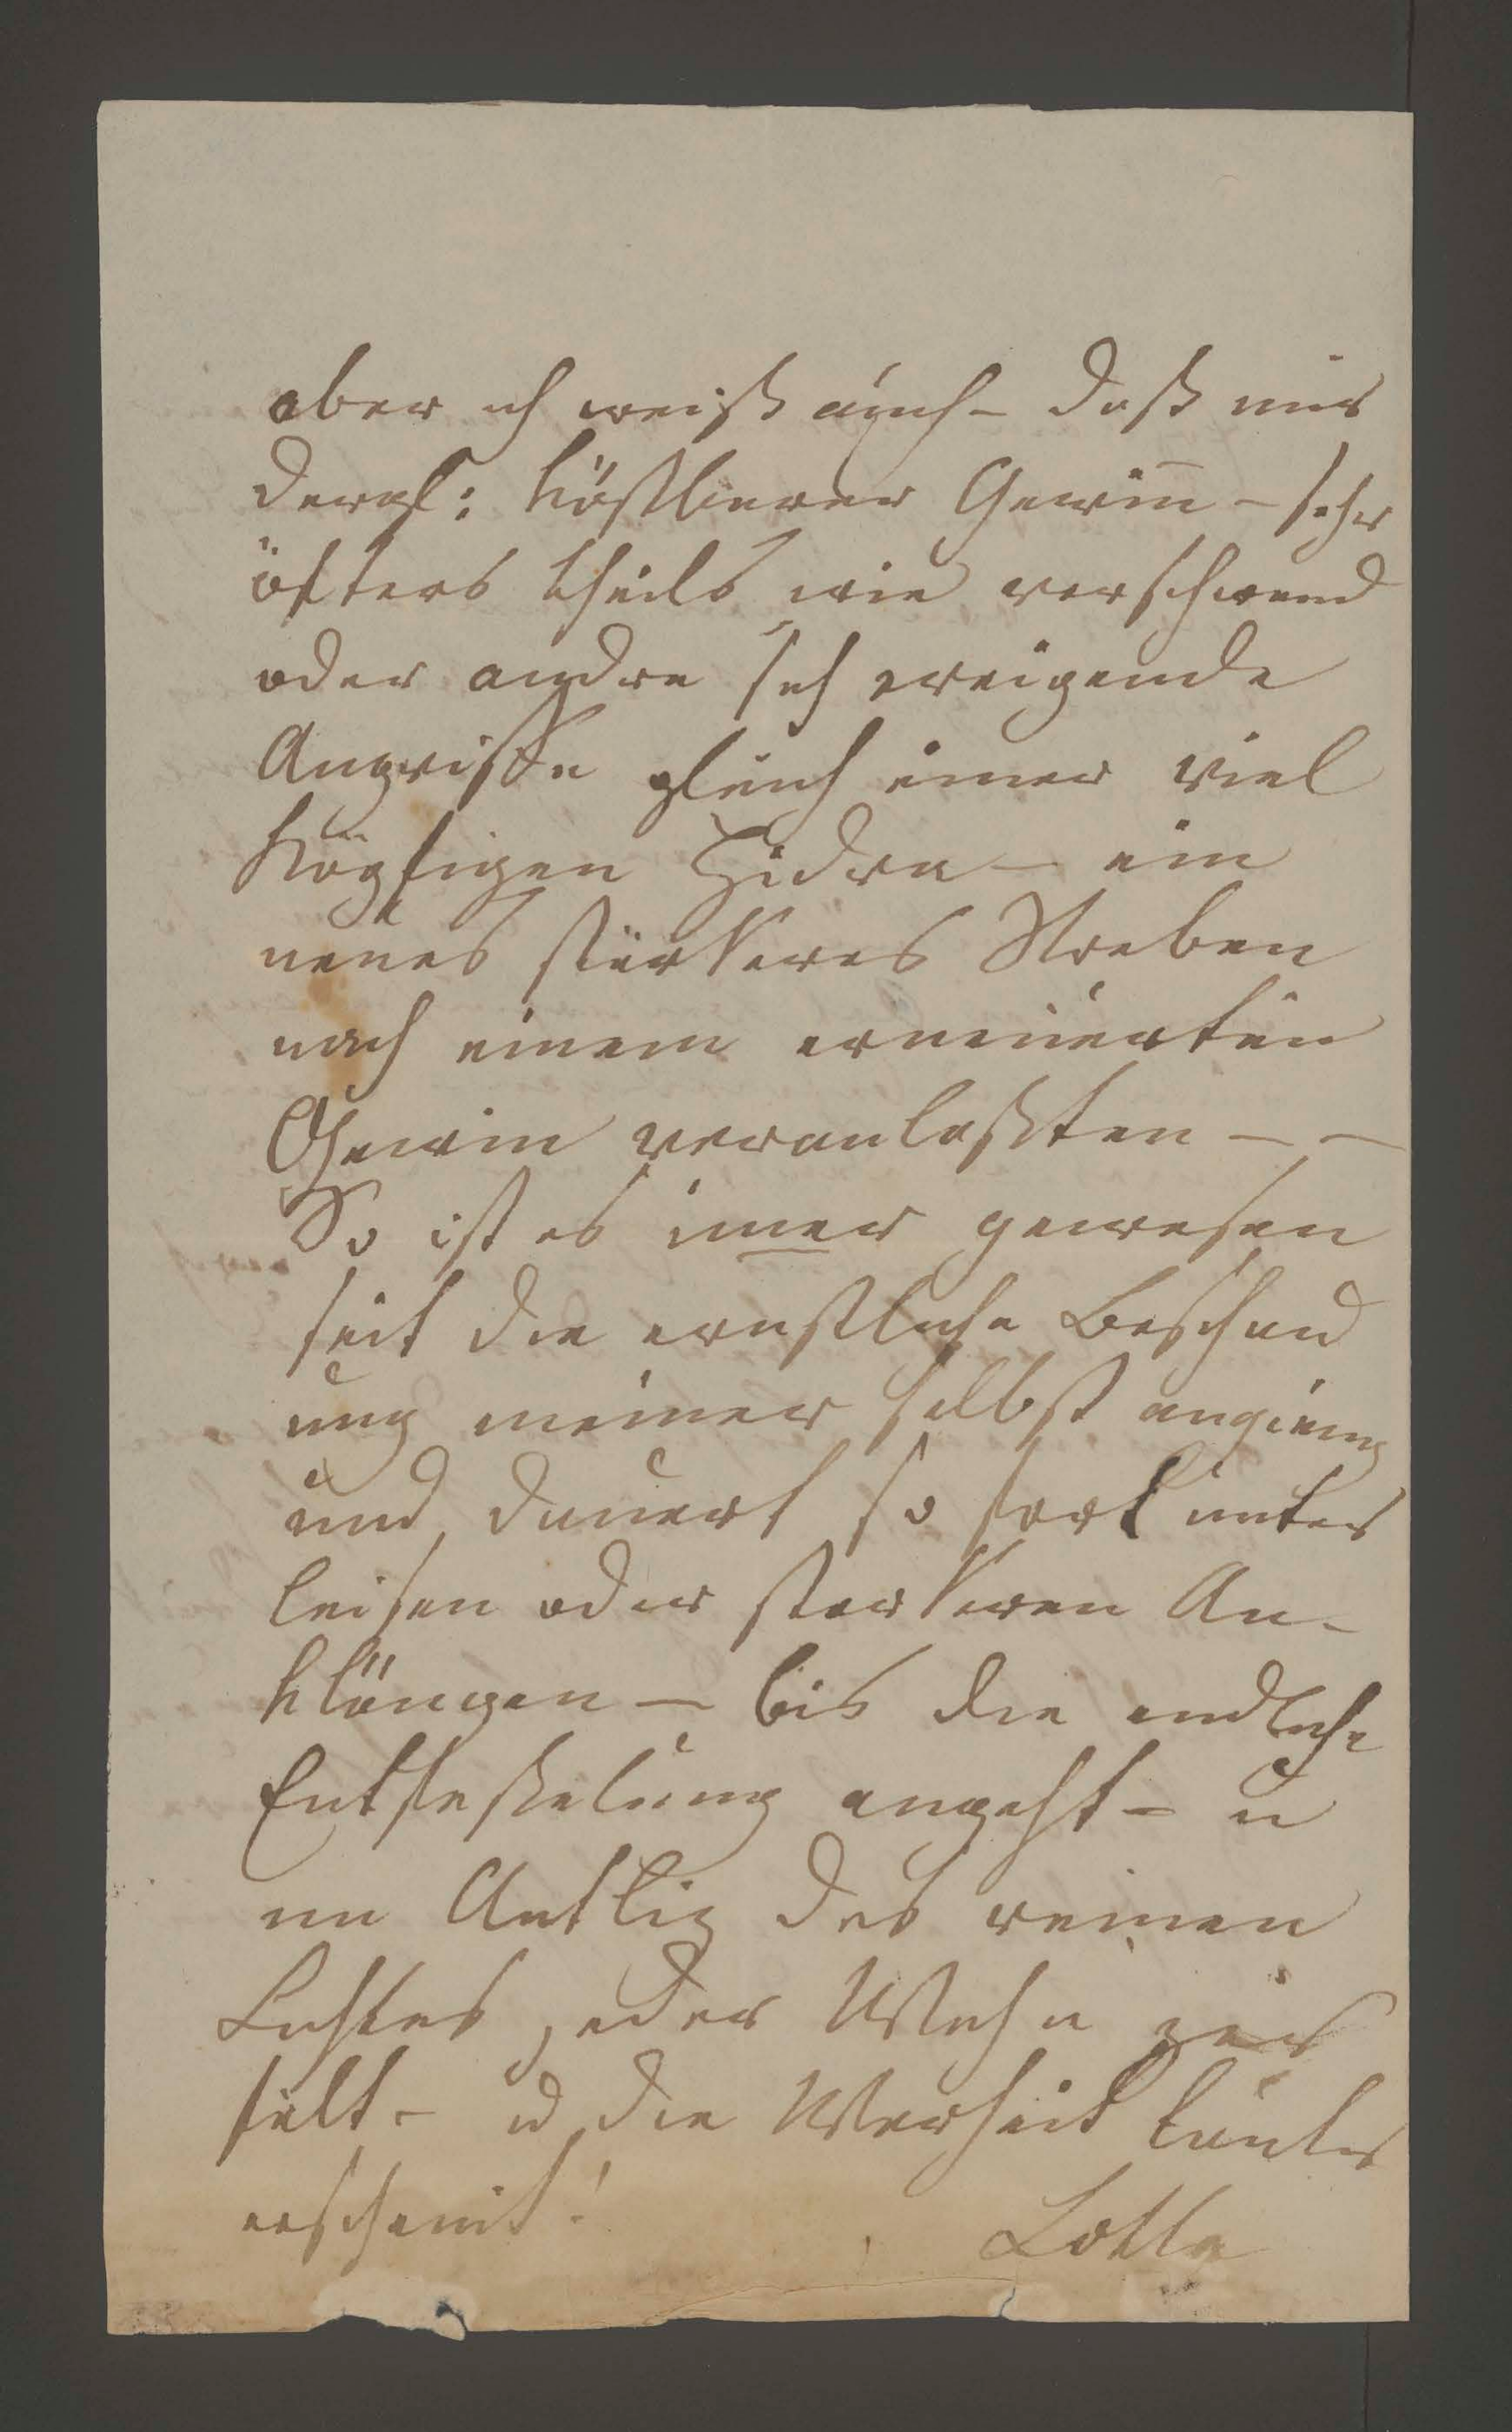 aber ich weiß auch – daß mir
dergl: köstlicher Gewinn – sehr
öfters theils wie verschwand
oder andre sich ereigende
Angriffe gleich einer viel
köpfigen Hidra – ein
neues stärkeres Streben
nach einem erneuerten
Gewin veranlaßten – –
So ist es imer gewesen
seit die ernstliche Beschau
ung meiner selbst angieng
und dauert so fort unter
leisen oder starkeren An-
klängen – bis die endliche
Entfeßelung angeht – u
im Antliz des reinen
Lichtes jeder Wahn zer
fält – u die Warheit lauter
erscheint!
Lotte